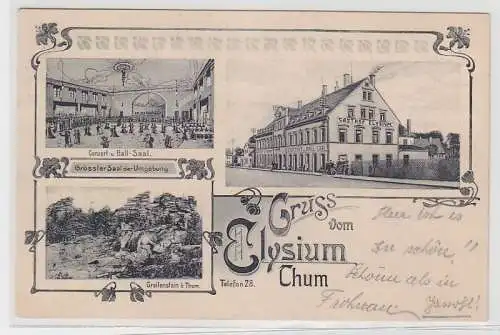 Concert u. Ball-Saal.
Grösster Saal der Umgebung
Greifenstein b. Thum.
GASTHOF ELYSIUM
Gruss vom
Elysium
Thum
Telefon 28.
Hier ist es
zu schön!!
schöner als in
Frohnau
Jawohl!